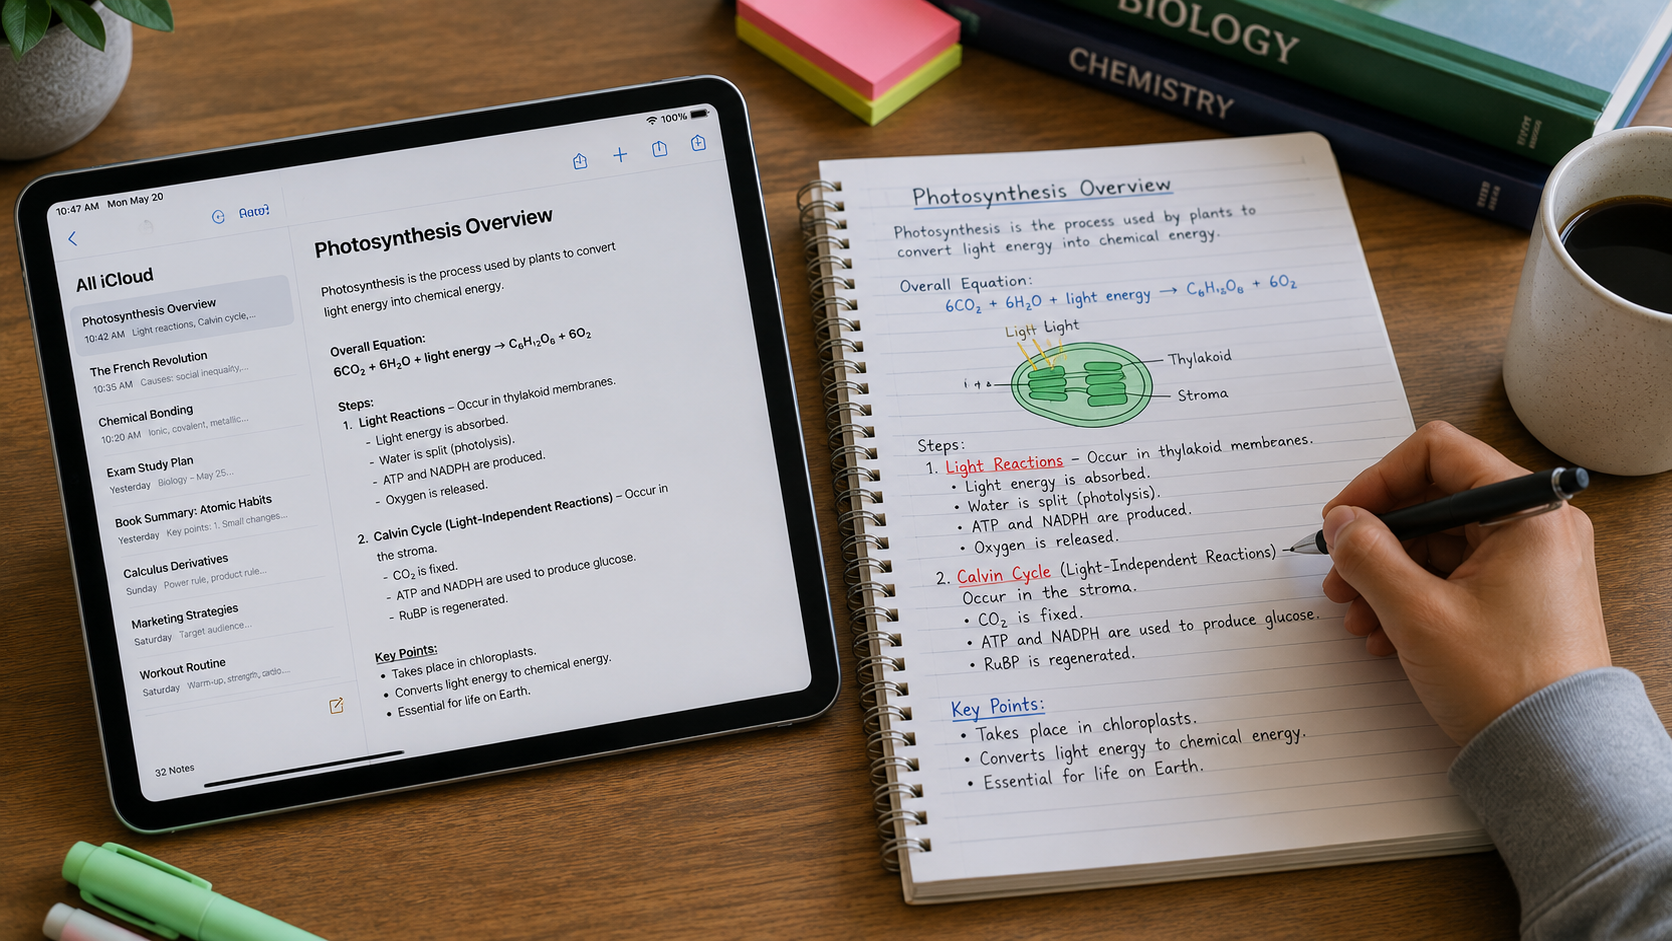 10:47 AM Mon May 20
100%
All iCloud
Photosynthesis Overview
10:42 AM Light reactions, Calvin cycle,...
The French Revolution
10:35 AM Causes: social inequality,...
Chemical Bonding
10:20 AM Ionic, covalent, metallic...
Exam Study Plan
Yesterday Biology – May 25...
Book Summary: Atomic Habits
Yesterday Key points: 1. Small changes...
Calculus Derivatives
Sunday Power rule, product rule...
Marketing Strategies
Saturday Target audience...
Workout Routine
Saturday Warm-up, strength, cardio....
32 Notes
Photosynthesis Overview
Photosynthesis is the process used by plants to convert
light energy into chemical energy.
Overall Equation:
6CO₂ + 6H₂O + light energy → C₆H₁₂O₆ + 6O₂
Steps:
1. Light Reactions – Occur in thylakoid membranes.
- Light energy is absorbed.
- Water is split (photolysis).
- ATP and NADPH are produced.
- Oxygen is released.
2. Calvin Cycle (Light-Independent Reactions) – Occur in
the stroma.
- CO₂ is fixed.
- ATP and NADPH are used to produce glucose.
- RuBP is regenerated.
Key Points:
• Takes place in chloroplasts.
• Converts light energy to chemical energy.
• Essential for life on Earth.
BIOLOGY
CHEMISTRY
Photosynthesis Overview
Photosynthesis is the process used by plants to
convert light energy into chemical energy.
Overall Equation:
6CO₂ + 6H₂O + light energy → C₆H₁₂O₆ + 6O₂
Light Light
Thylakoid
Stroma
Steps:
1. Light Reactions – Occur in thylakoid membranes.
• Light energy is absorbed.
• Water is split (photolysis).
• ATP and NADPH are produced.
• Oxygen is released.
2. Calvin Cycle (Light-Independent Reactions) –
Occur in the stroma.
• CO₂ is fixed.
• ATP and NADPH are used to produce glucose.
• RuBP is regenerated.
Key Points:
• Takes place in chloroplasts.
• Converts light energy to chemical energy.
• Essential for life on Earth.